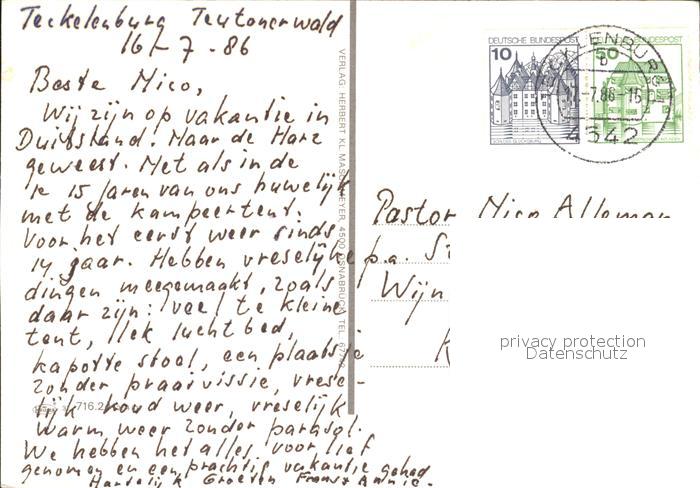 Teckelenburg Teutonerwald
16-7-86
Beste Nico,
Wij zijn op vakantie in
Duitsland. Naar de Harz
geweest. Net als in de
1e 15 jaren van ons huwelijk
met de kampeertent.
Voor het eerst weer sinds
14 jaar. Hebben vreselijke
dingen meegemaakt, zoals
daar zijn: veel te kleine
tent, lek luchtbed,
kapotte stoel, een plaatsje
zonder privissie, vrese-
lijk koud weer, vreselijk
warm weer zonder parasol.
We hebben het alles voor lief
genomen en een prachtig vakantie gehad
Hartelijk Groeten Frans & Annie.
VERLAG HERBERT KL MASCHMEYER, 4500 OSNABRÜCK, TEL.
716.2
DEUTSCHE BUNDESPOST
10
SCHLOSS GLÜCKSBURG
DEUTSCHE BUNDESPOST
50
TECKLENBURG
b
17.-7.86-16
4542
Pastor Nico Alleman
p.a. St
Wijn
K
privacy protection
Datenschutz